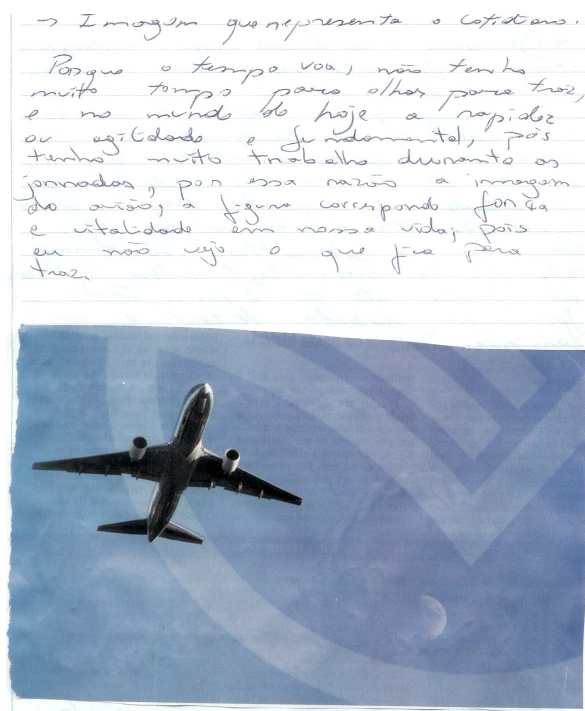 → Imagem que representa o cotidiano.
Porque o tempo voa, não tenho
muito tempo para olhar para traz,
e no mundo de hoje a rapidez
ou agilidade e fundamental, pois
tenho muito trabalho durante as
jornadas, por essa razão a imagem
do avião, a figura corresponde força
e vitalidade em nossa vida, pois
eu não vejo o que fica para
traz.